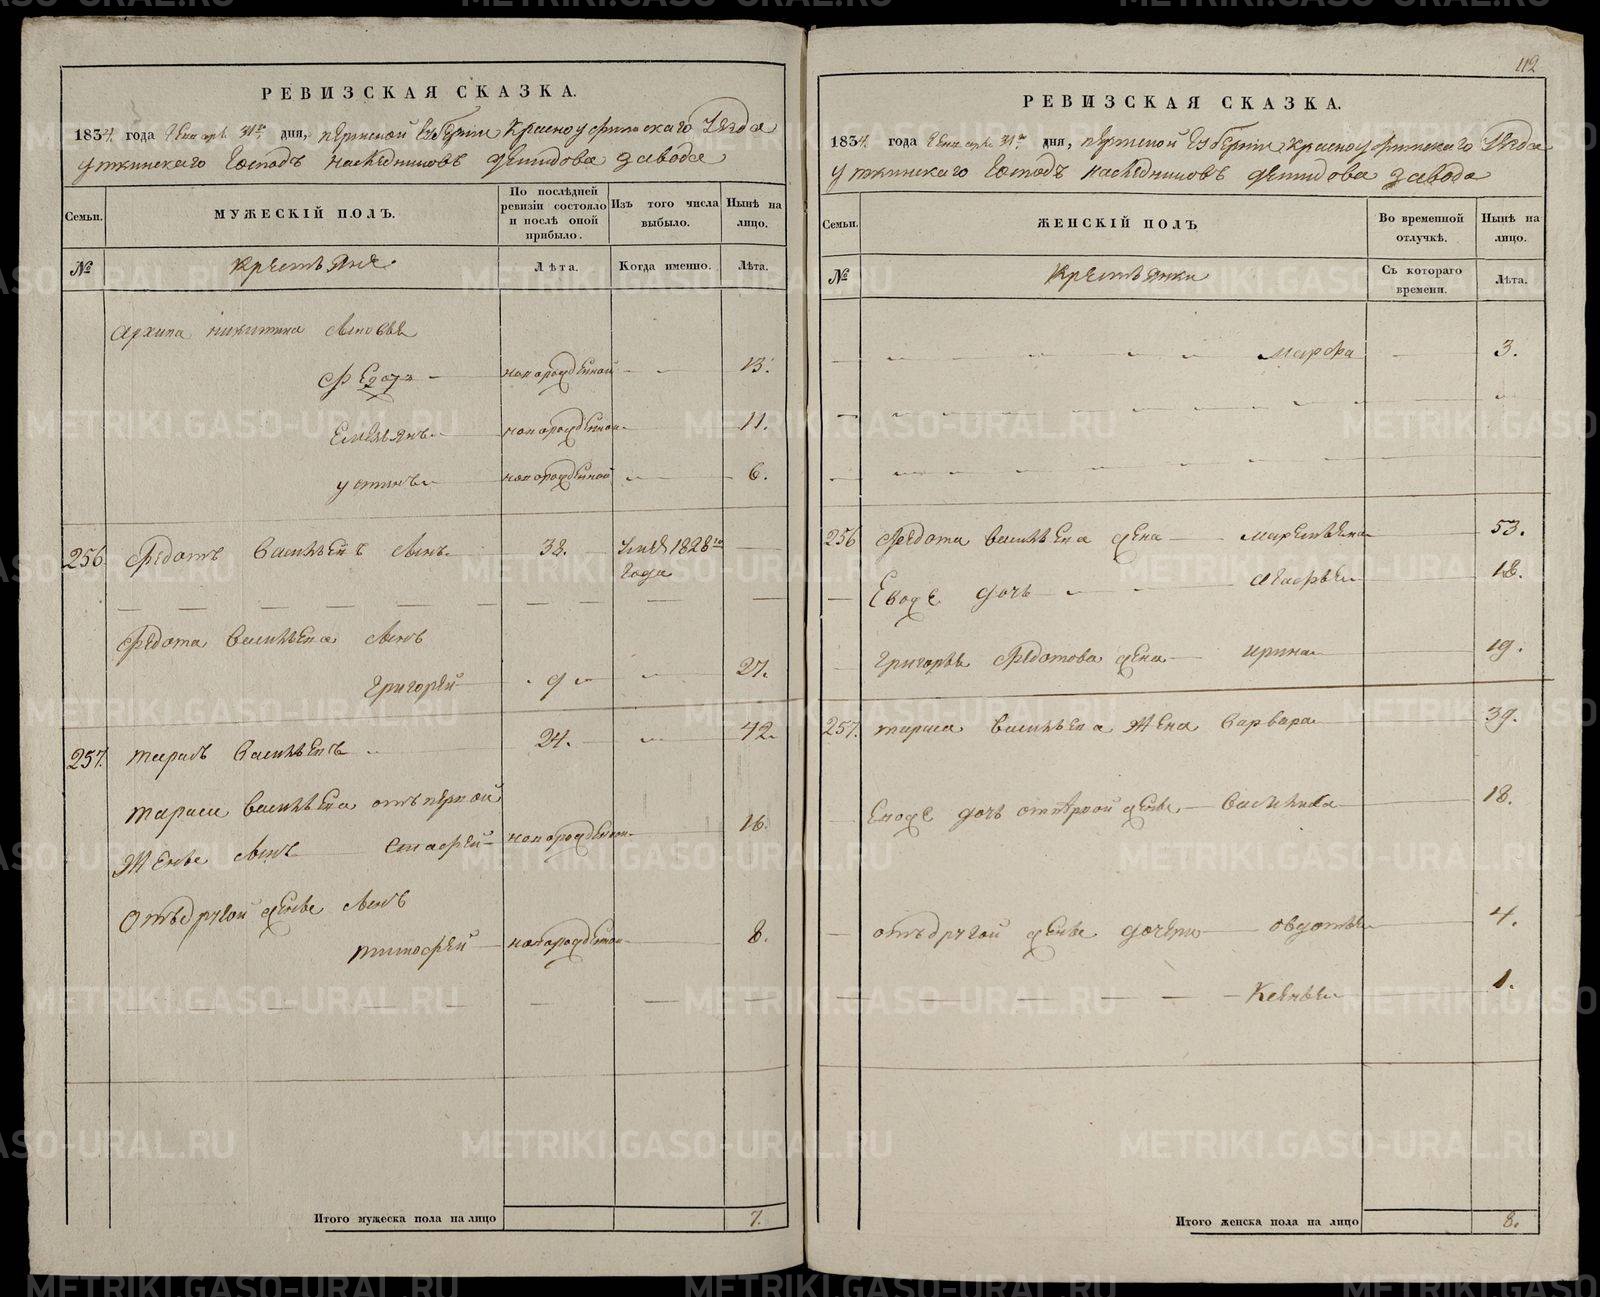 РЕВИЗСКАЯ СКАЗКА.
1834. года Генваря 31го дня, Пермской Губернии Красноуфимскаго Уезда
Уткинскаго Господъ наследниковъ Демидова завода
Семьи.
МУЖЕСКІЙ ПОЛЪ.
По послѣдней ревизіи состояло и послѣ оной прибыло.
Изъ того числа выбыло.
Нынѣ на лицо.
№
Крестьяне
Лѣта.
Когда именно.
Лѣта.
Архипа Никитина сыновья
новорожденной 13.
Емельянъ новорожденной 11.
Устинъ новорожденной 6.
256. Федотъ Васильевъ сынъ 38. 1828го
года
Федота Васильева сынъ
Григорей 9 27.
257. Тарасъ Васильевъ 24. 42.
Тараса Васильева отъ первой
жены сынъ новорожденной 16.
Отъ другой жены сынъ
Тимофей новорожденной 8.
Итого мужеска пола на лицо 7.
112
РЕВИЗСКАЯ СКАЗКА.
1834. года Генваря 31го дня, Пермской Губернии Красноуфимскаго Уезда
Уткинскаго Господъ наследниковъ Демидова завода
Семьи.
ЖЕНСКІЙ ПОЛЪ
Во временной отлучкѣ.
Нынѣ на лицо.
№
Крестьянки
Съ котораго времени.
Лѣта.
Марфа 3.
256 Федота Васильева жена 53.
Евоже дочь 18.
Григорья Федотова жена Ирина 19.
257. Тараса Васильева жена Варвара 39.
Евоже дочь от первой жены Василиса 18.
отъ другой жены дочери Овдотья 4.
Ксенья 1.
Итого женска пола на лицо 8.
METRIKI.GASO-URAL.RU